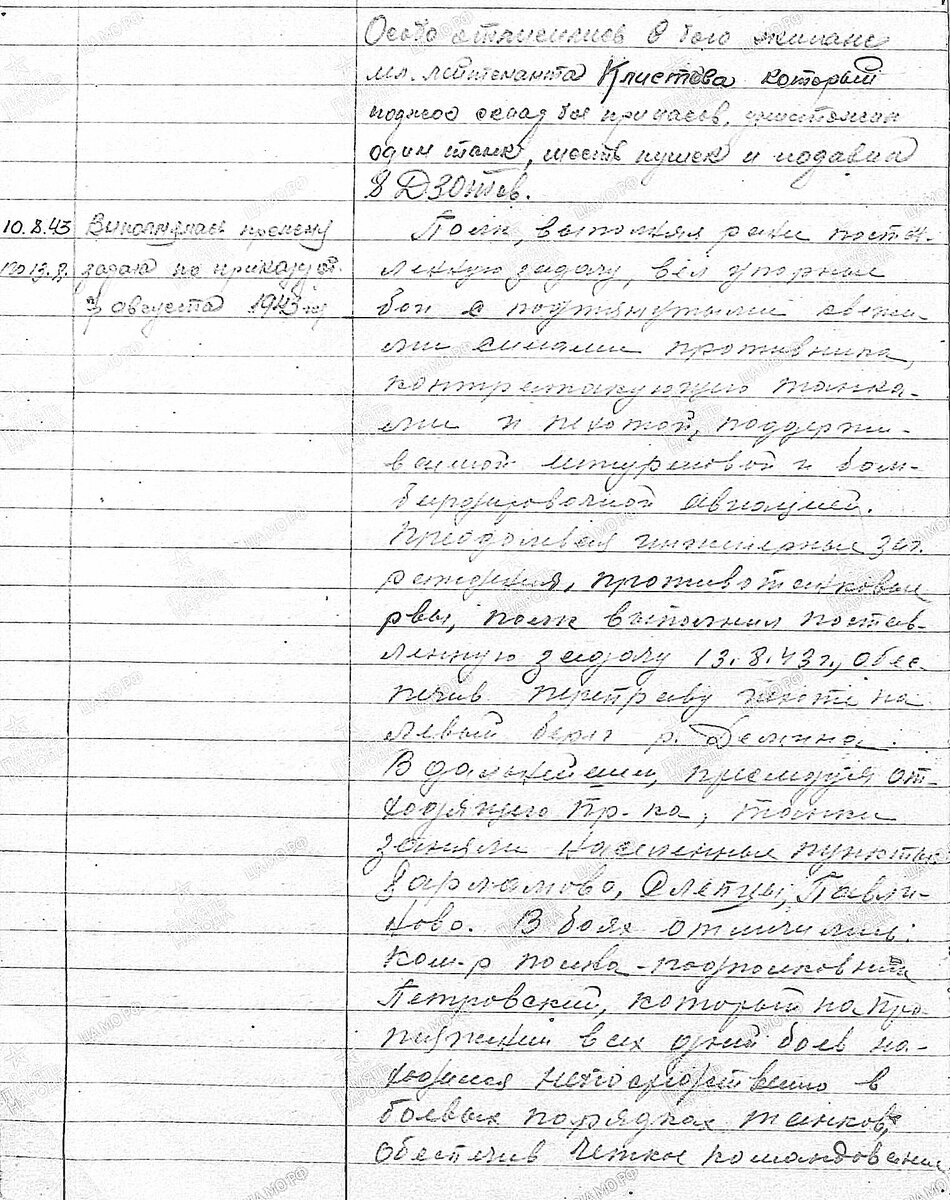 Особо отличился в бою экипаж
мл. лейтенанта Клистова который
поджог склад бое припасов, уничтожил
один танк, шесть пушек и подавил
8 ДЗОТов.
10.8.43 Выполнялась прежняя
по 13.8. задача по приказу от
3 августа 1943 г.
Полк, выполняя ранее постав-
ленную задачу, вёл упорные
бои с подтянутыми свежи-
ми силами противника,
контратакующего танка-
ми и пехотой, поддержи-
ваемой штурмовой и бом-
бардировочной авиацией.
Преодолевая инженерные заг-
раждения, противотанковые
рвы, полк выполнил постав-
ленную задачу 13.8.43 г., обес-
печив переправу пехоте на
левый берег р. Демина.
В дальнейшем, преследуя от-
ходящего пр-ка, танки
заняли населенные пункты
Варламово, Слепцы, Павли-
ново. В боях отличились:
Ком-р полка - подполковник
Петровский, который на про-
тяжении всех дней боев на-
ходился непосредственно в
боевых порядках танков,
обеспечив четкое командование